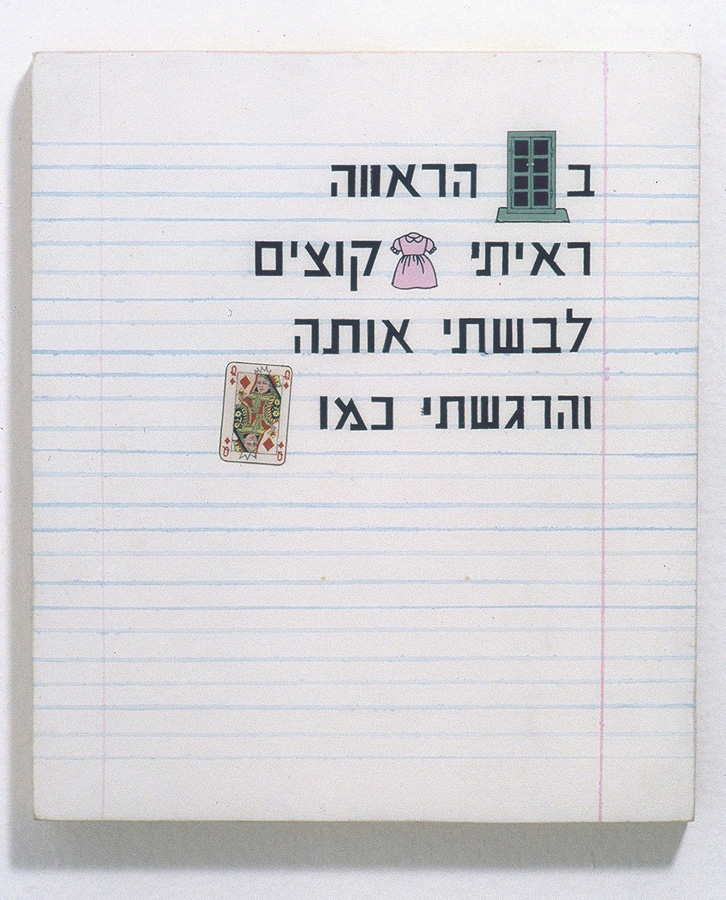 ב הראווה
ראיתי קוצים
לבשתי אותה
והרגשתי כמו
Q Q
Q Q